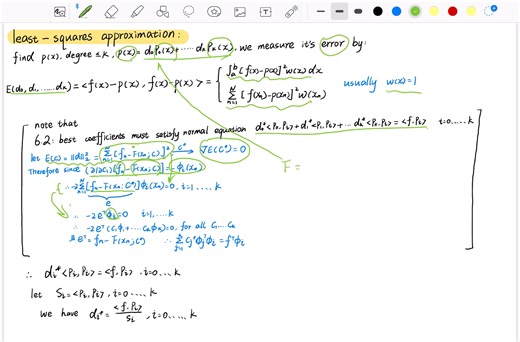 least-squares approximation:
find p(x). degree ≤ k, p(x) = d₀P₀(x)+ ..... dₖPₖ(x). we measure it's error by:
E(d₀, d₁, ..... dₖ) = <f(x)-p(x), f(x)-p(x)> = { ∫ₐᵇ [f(x)-p(x)]² w(x) dx
Σ [f(xₙ)-p(xₙ)]² w(xₙ) usually w(x)=1
note that
6.2: best coefficients must satisfy normal equation d₀*<P₀,Pₜ>+d₁*<P₁,Pₜ>+... dₖ*<Pₖ,Pₜ> = <f,Pₜ> t=0....k
let E(c) = ||e||₂² = Σ [fₙ-F(xₙ;C)]² → JE(C*)=0
Therefore since (∂/∂Cᵢ)[fₙ-F(xₙ;C)] = -ϕᵢ(xₙ)
∴ -2Σ[fₙ-F(xₙ;C*)]ϕᵢ(xₙ)=0, i=1,....k
e
∴ -2eᵀϕᵢ=0 i=1,....k
∴ -2eᵀ(C₁ϕ₁+....Cₖϕₙ)=0, for all C₁...Cₖ
& eᵀ= fₙ-F(xₙ;C* ∴ Σ Cⱼ*ϕⱼᵀϕᵢ = fᵀϕᵢ
F =
∴ dₜ*<Pₜ,Pₜ> = <f,Pₜ>, t=0....k
let Sₜ=<Pₜ,Pₜ>, t=0....k
we have dₜ* = <f,Pₜ>/Sₜ, t=0....k